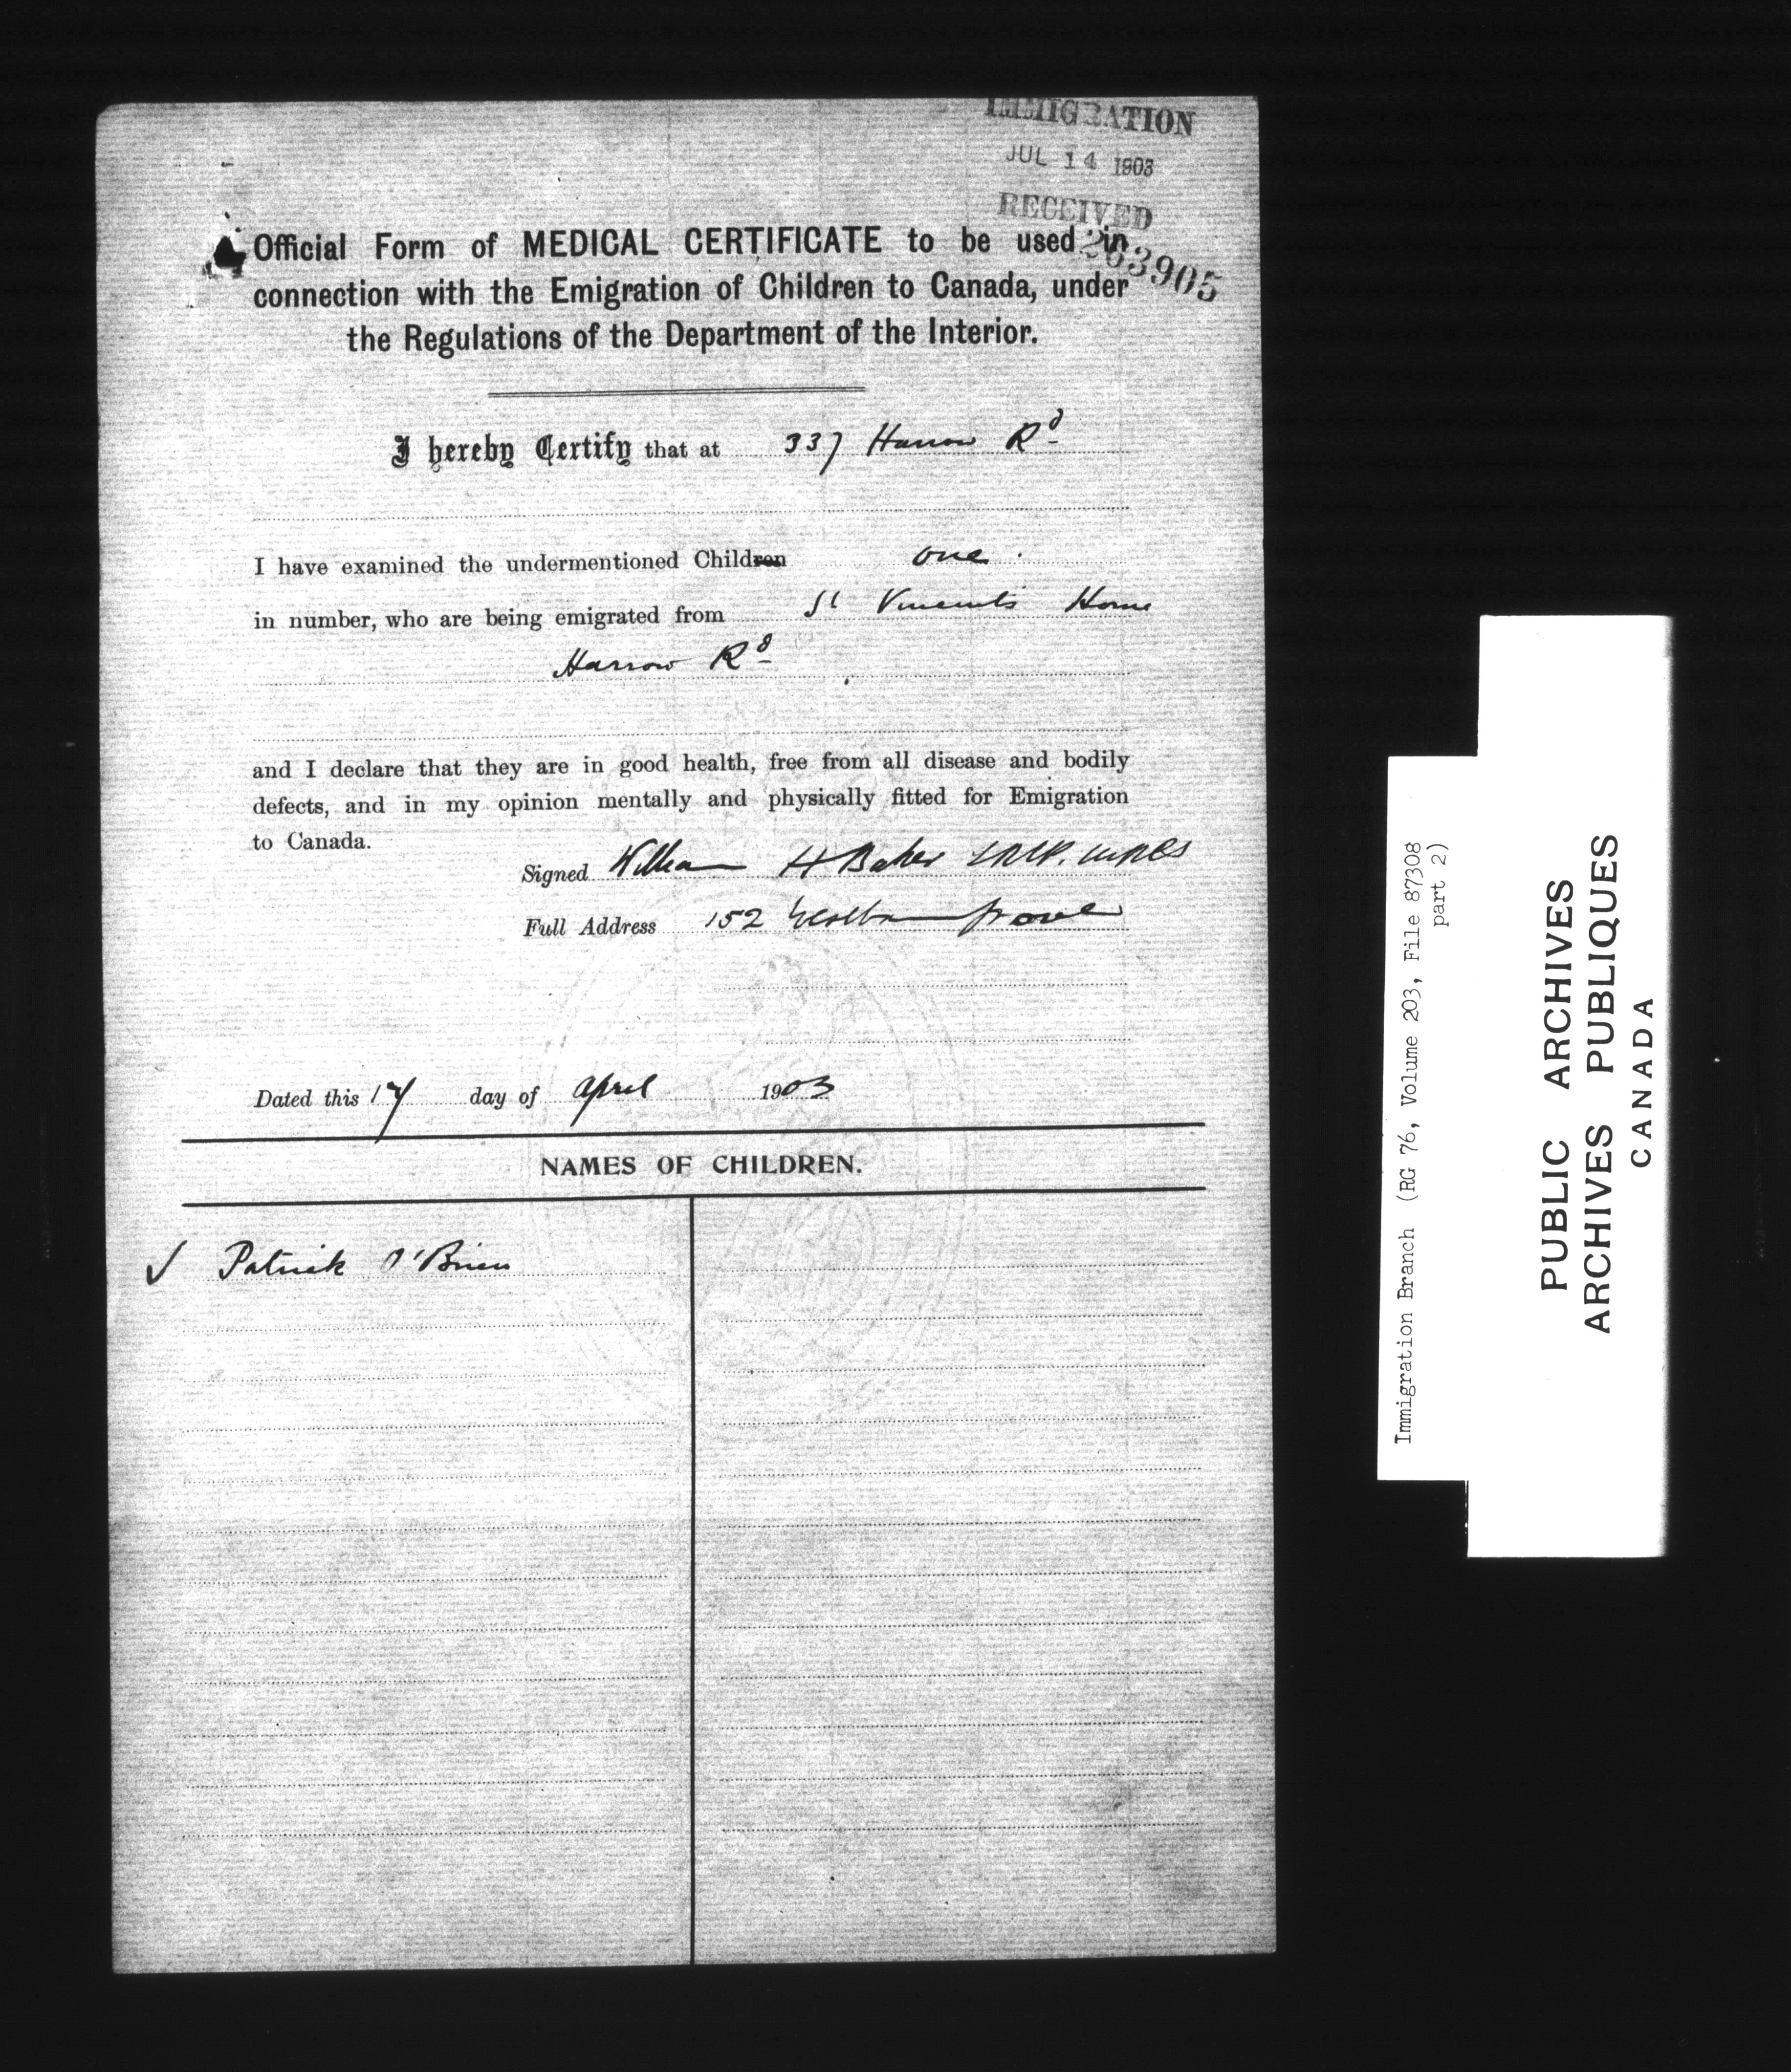 IMMIGRATION
JUL 14 1903
RECEIVED
263905
Official Form of MEDICAL CERTIFICATE to be used in
connection with the Emigration of Children to Canada, under
the Regulations of the Department of the Interior.
I hereby Certify that at 337 Harrow Rd
I have examined the undermentioned Children one.
in number, who are being emigrated from St Vincents Home
Harrow Rd
and I declare that they are in good health, free from all disease and bodily
defects, and in my opinion mentally and physically fitted for Emigration
to Canada.
Signed William H Baker LRCP. MRCS
Full Address 152 Grove
Dated this 17 day of April 1903
NAMES OF CHILDREN.
✓ Patrick O'Brien
Immigration Branch (RG 76, Volume 203, File 87308
part 2)
PUBLIC ARCHIVES
ARCHIVES PUBLIQUES
CANADA